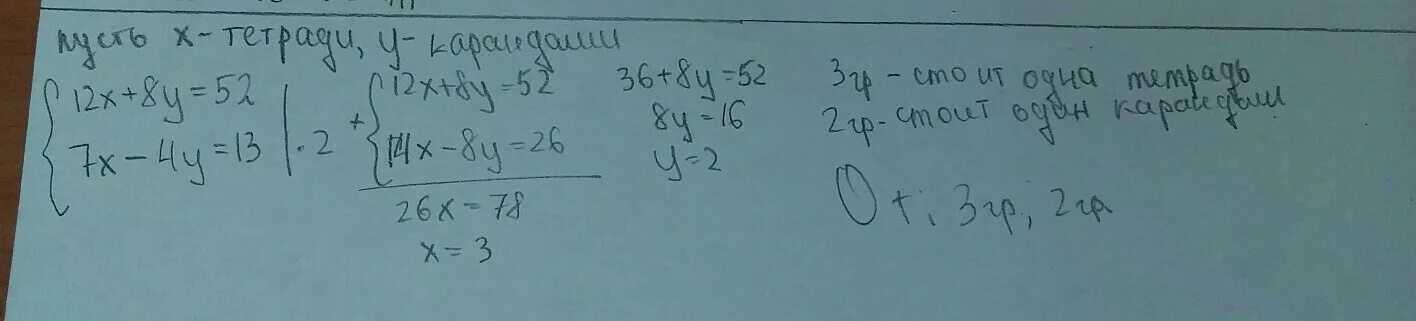 пусть х-тетради, у-карандаши
12x+8y=52
7x-4y=13 | ·2
+ 12x+8y=52
14x-8y=26
26x=78
x=3
36+8y=52
8y=16
y=2
3гр-стоит одна тетрадь
2гр-стоит один карандаш
От: 3гр, 2гр